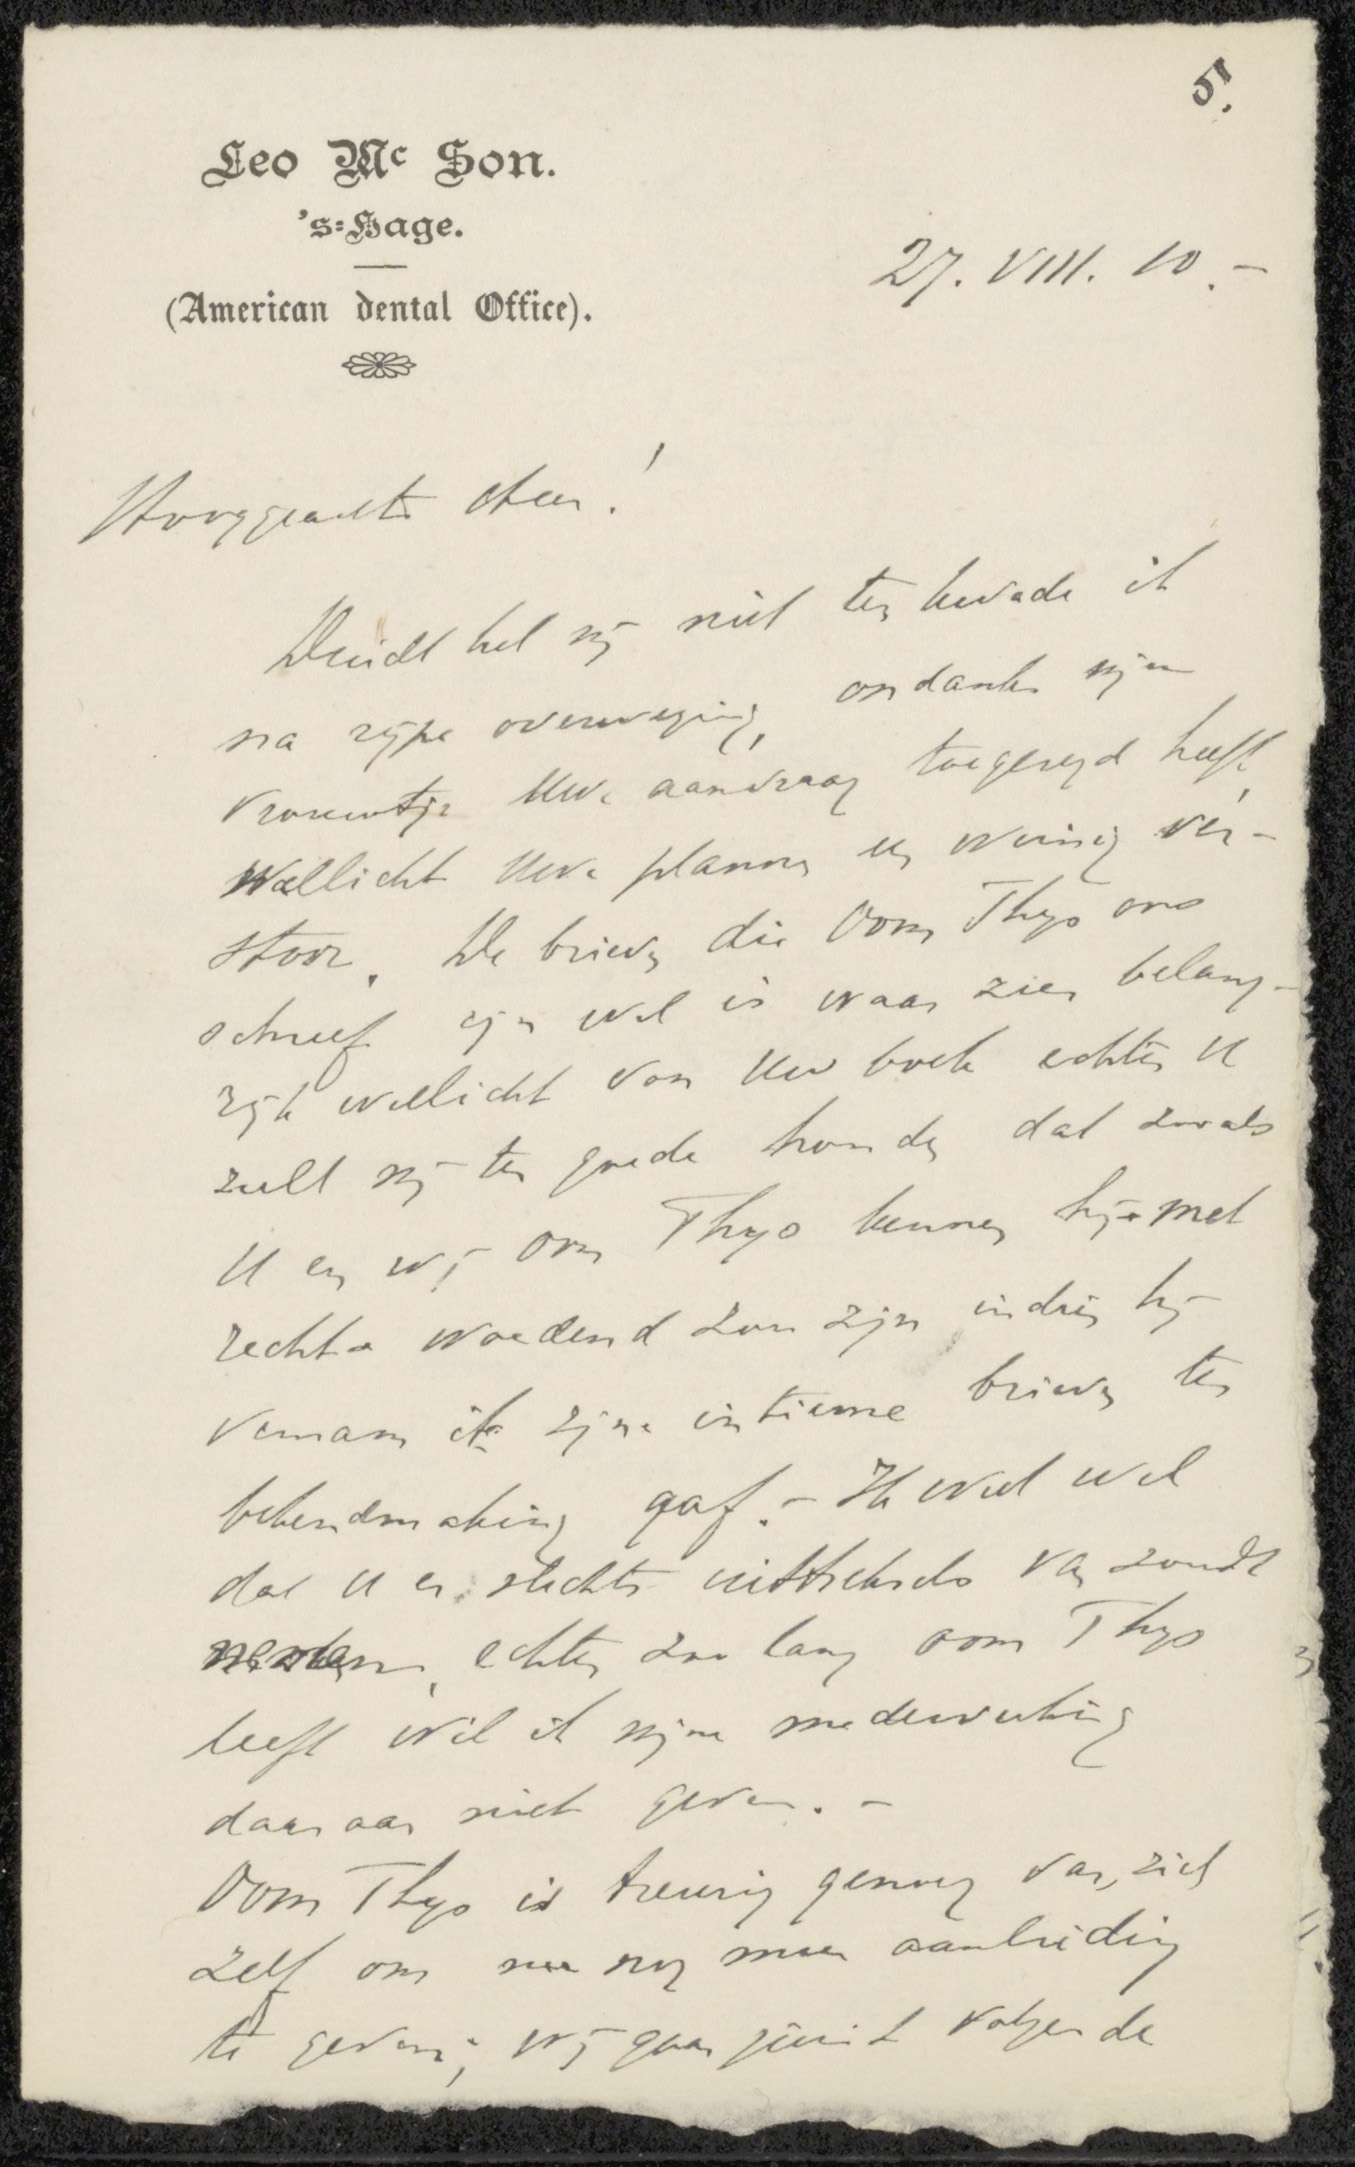 5.
Leo Mc Son.
's=Hage.
(American dental Office).
27. VIII. 10. -
Hooggeachte Heer!
Duidt het mij niet ten kwade ik
na rijpe overweging, ondanks mijn
vrouwtje Uwe aanvraag toegezegd heeft,
wellicht Uwe plannen een weinig ver-
stoor. De brieven die Oom Thijs ons
schreef zijn wel is waar zeer belang-
rijk wellicht voor Uw boek echter U
zult mij ten goede houden dat zooals
U en wij Oom Thijs kennen hij met
recht woedend zou zijn indien hij
vernam ik zijne intieme brieven ter
bekendmaking gaf. - Ik weet wel
dat U er slechts uittreksels van zoudt
nemen, echter zoo lang oom Thijs
leeft wil ik mijne medewerking
daaraan niet geven. -
Oom Thijs is treurig genoeg van zich
zelf om nu nog meer aanleiding
te geven; wij gaan juist volgende